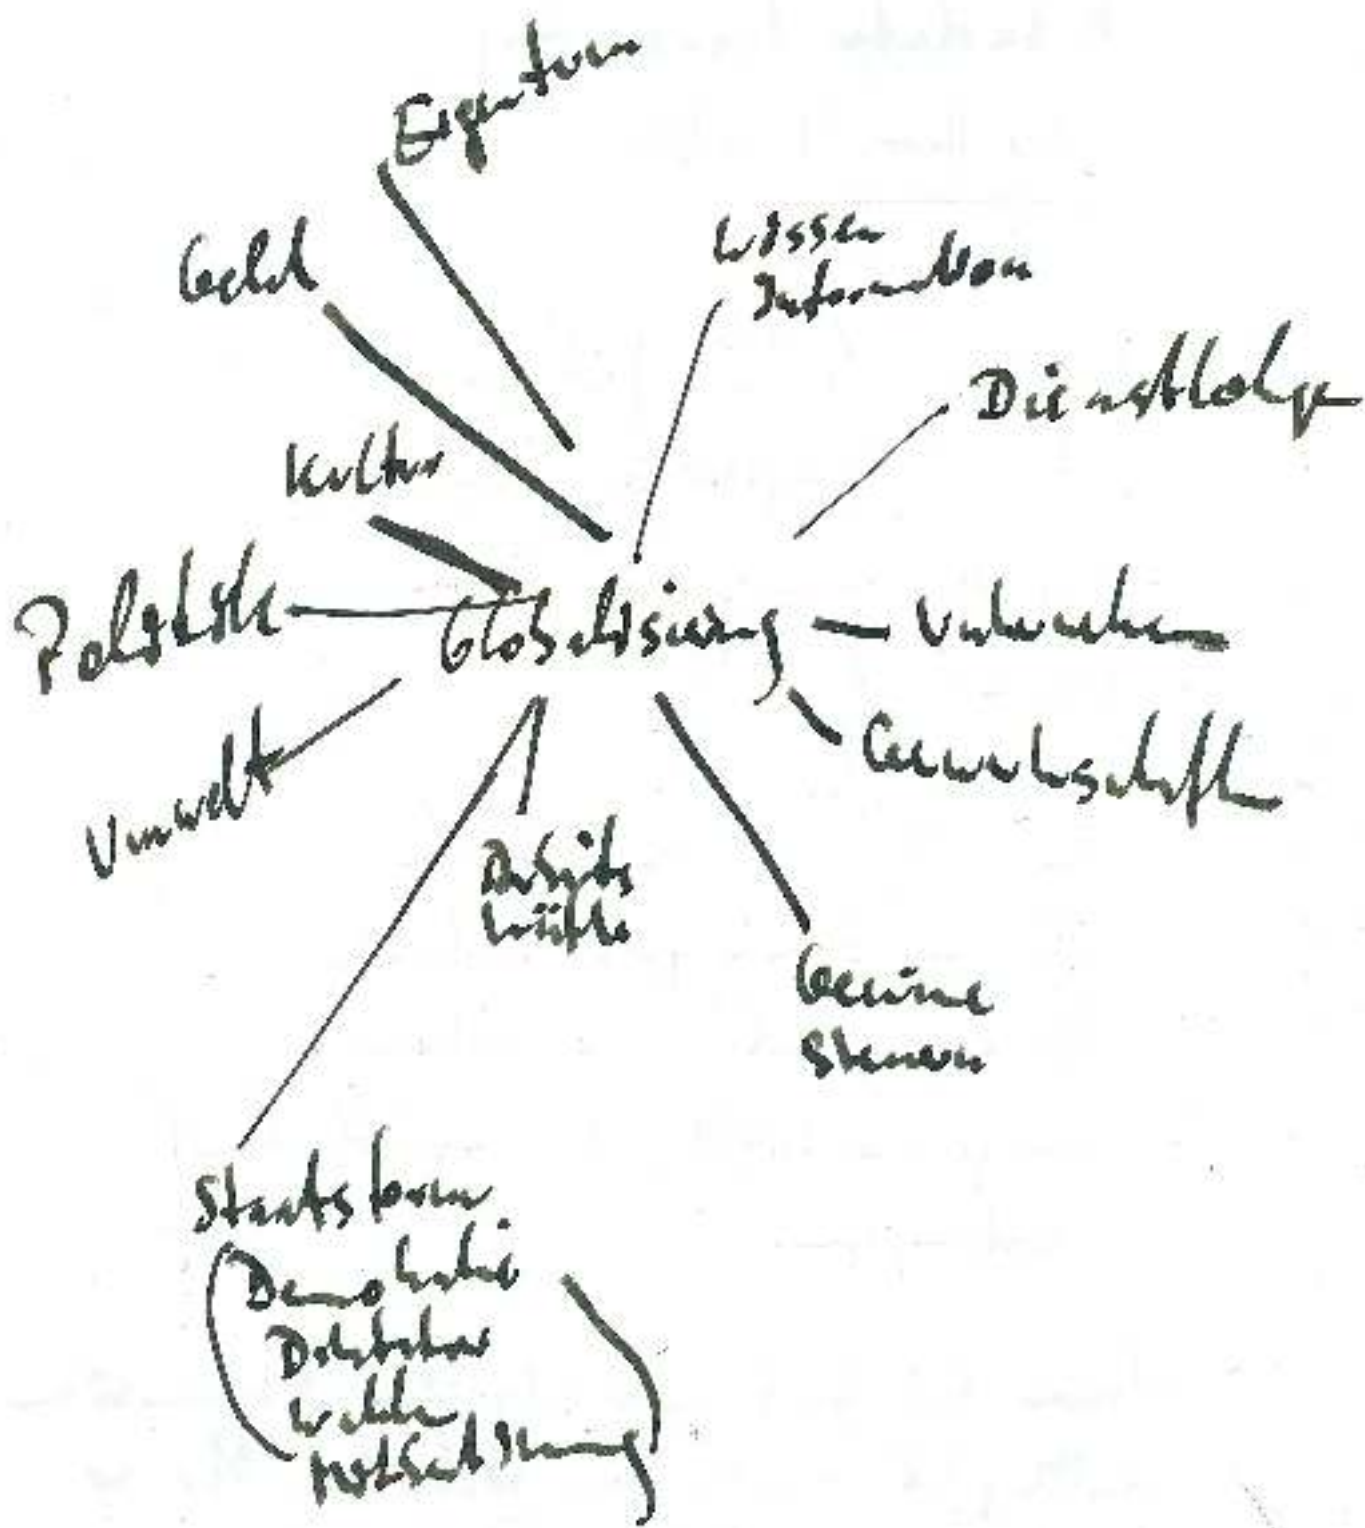 Eigentum
Geld
Wissen
Information
Kultur
Politik
Globalisierung
Gewerkschaften
Umwelt
Arbeits
kräfte
Gewinne
Steuern
Staatsform
Demokratie
Diktatur
Wahlen
Mitbestimmung